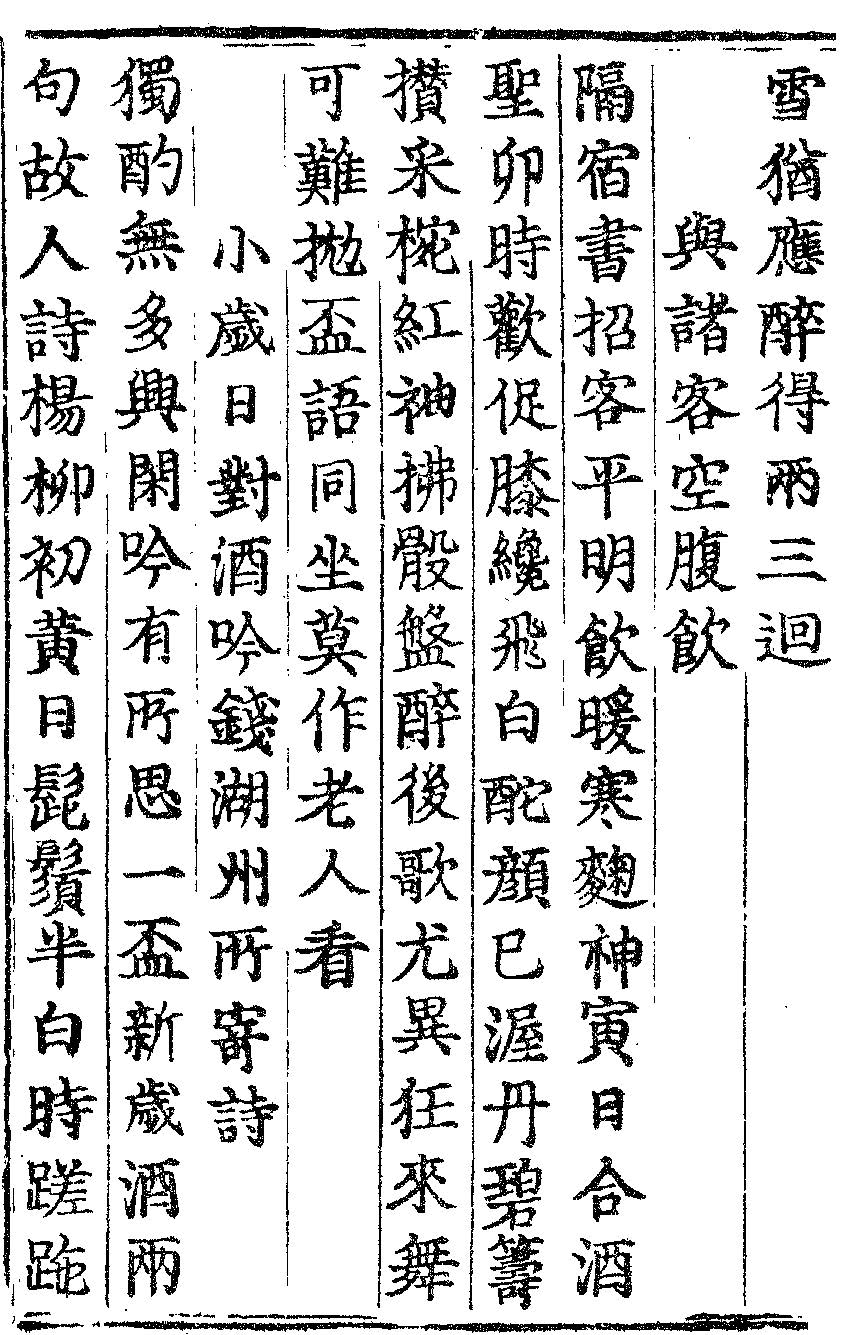 雪猶應醉得兩三迴
與諸客空腹飲
隔宿書招客平明飲暖寒麴神寅日合酒
聖卯時歡促膝纔飛白酡顔已渥丹碧籌
攅采椀紅袖拂骰盤醉後歌尤異狂來舞
可難抛盃語同坐莫作老人看
小歲日對酒吟錢湖州所寄詩
獨酌無多興閑吟有所思一盃新歲酒兩
句故人詩楊柳初黃日髭鬚半白時蹉跎